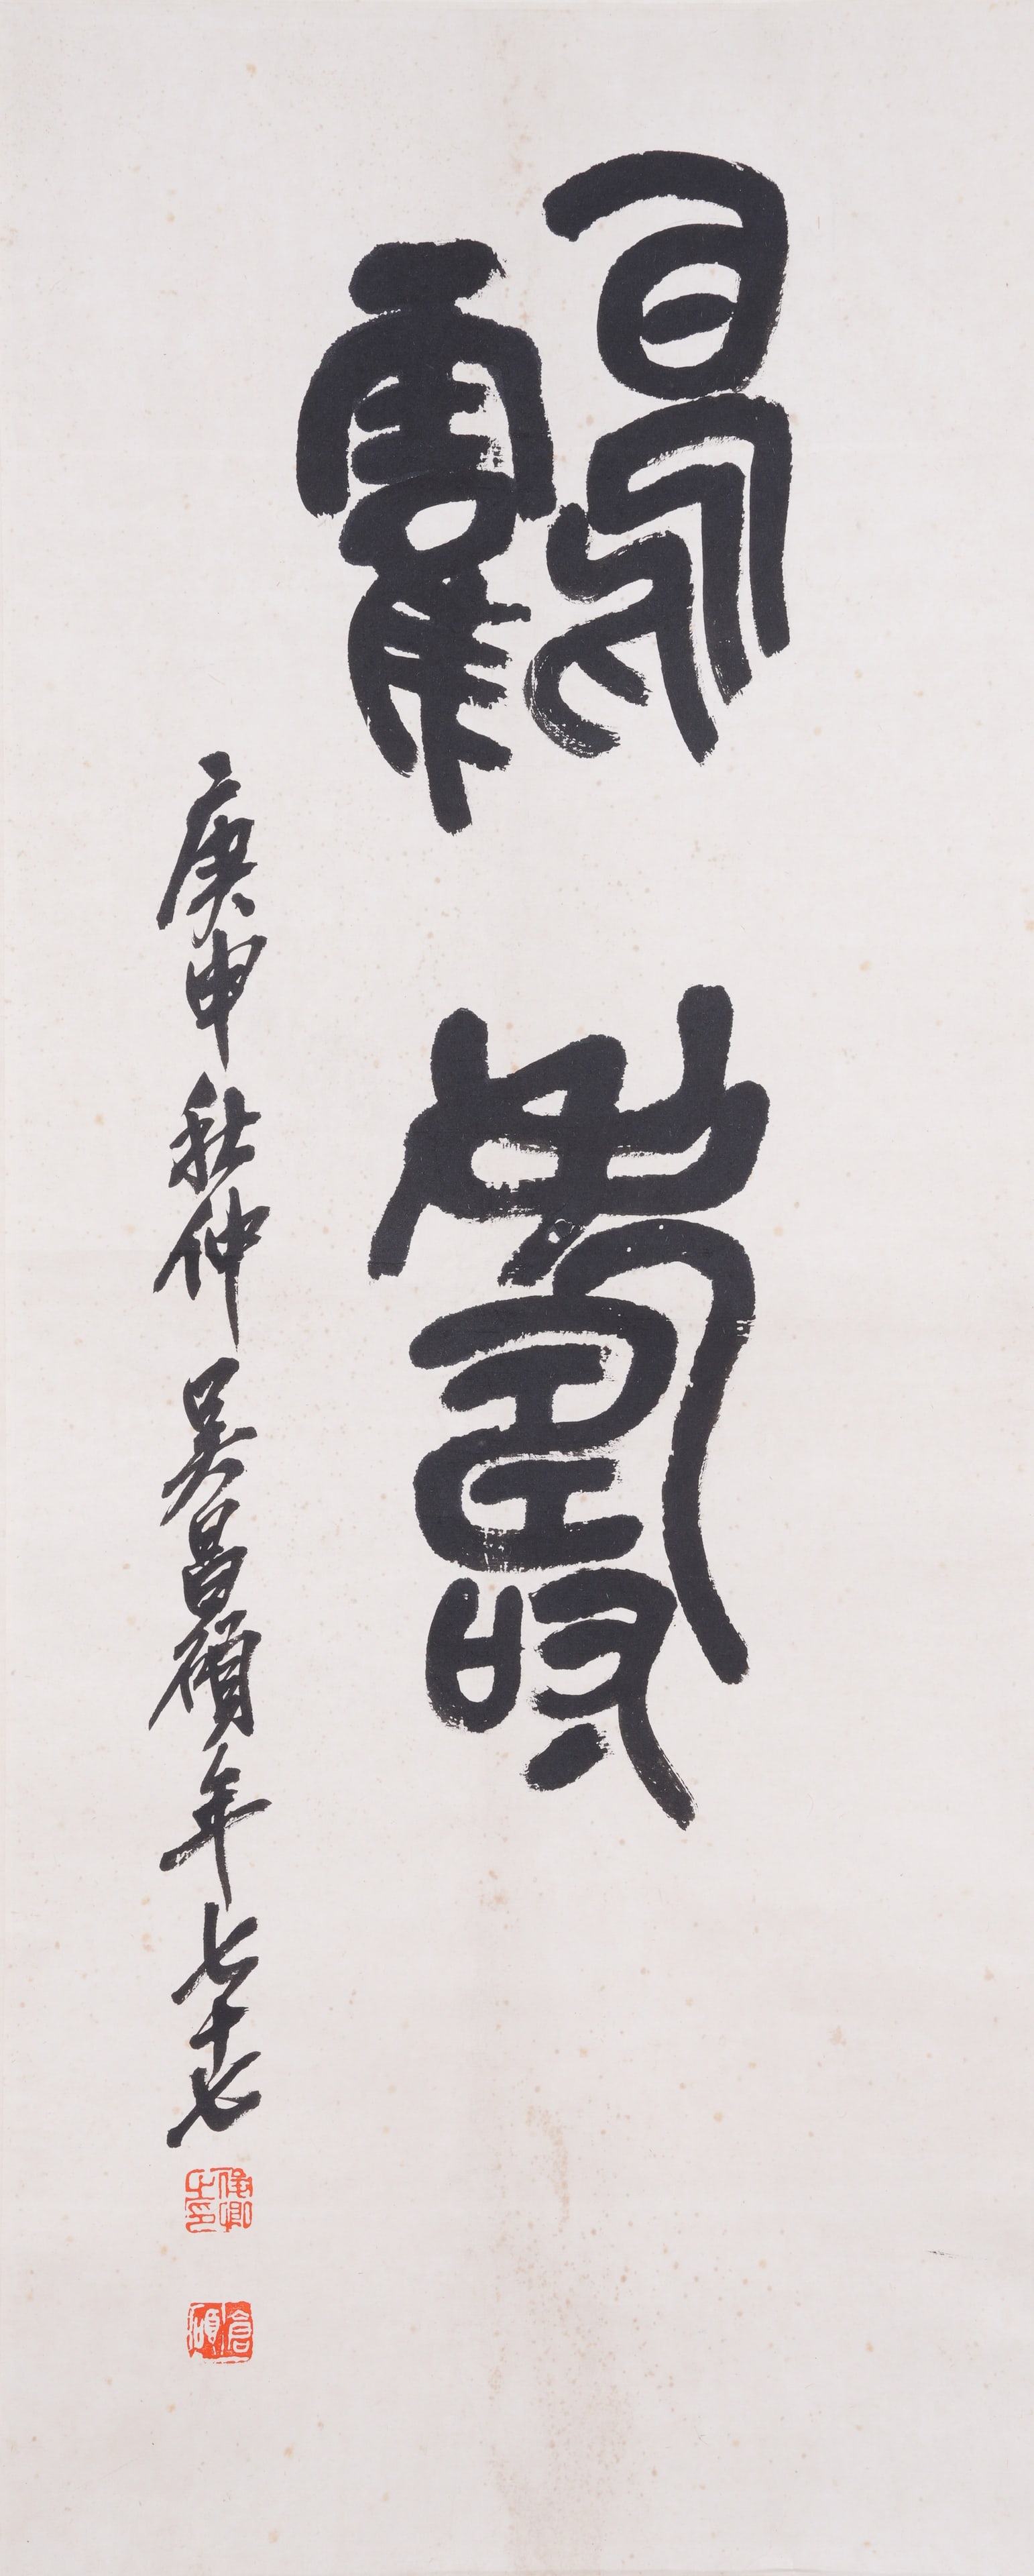 鶴壽
庚申秋仲吳昌碩年七十七
俊卿之印
倉碩